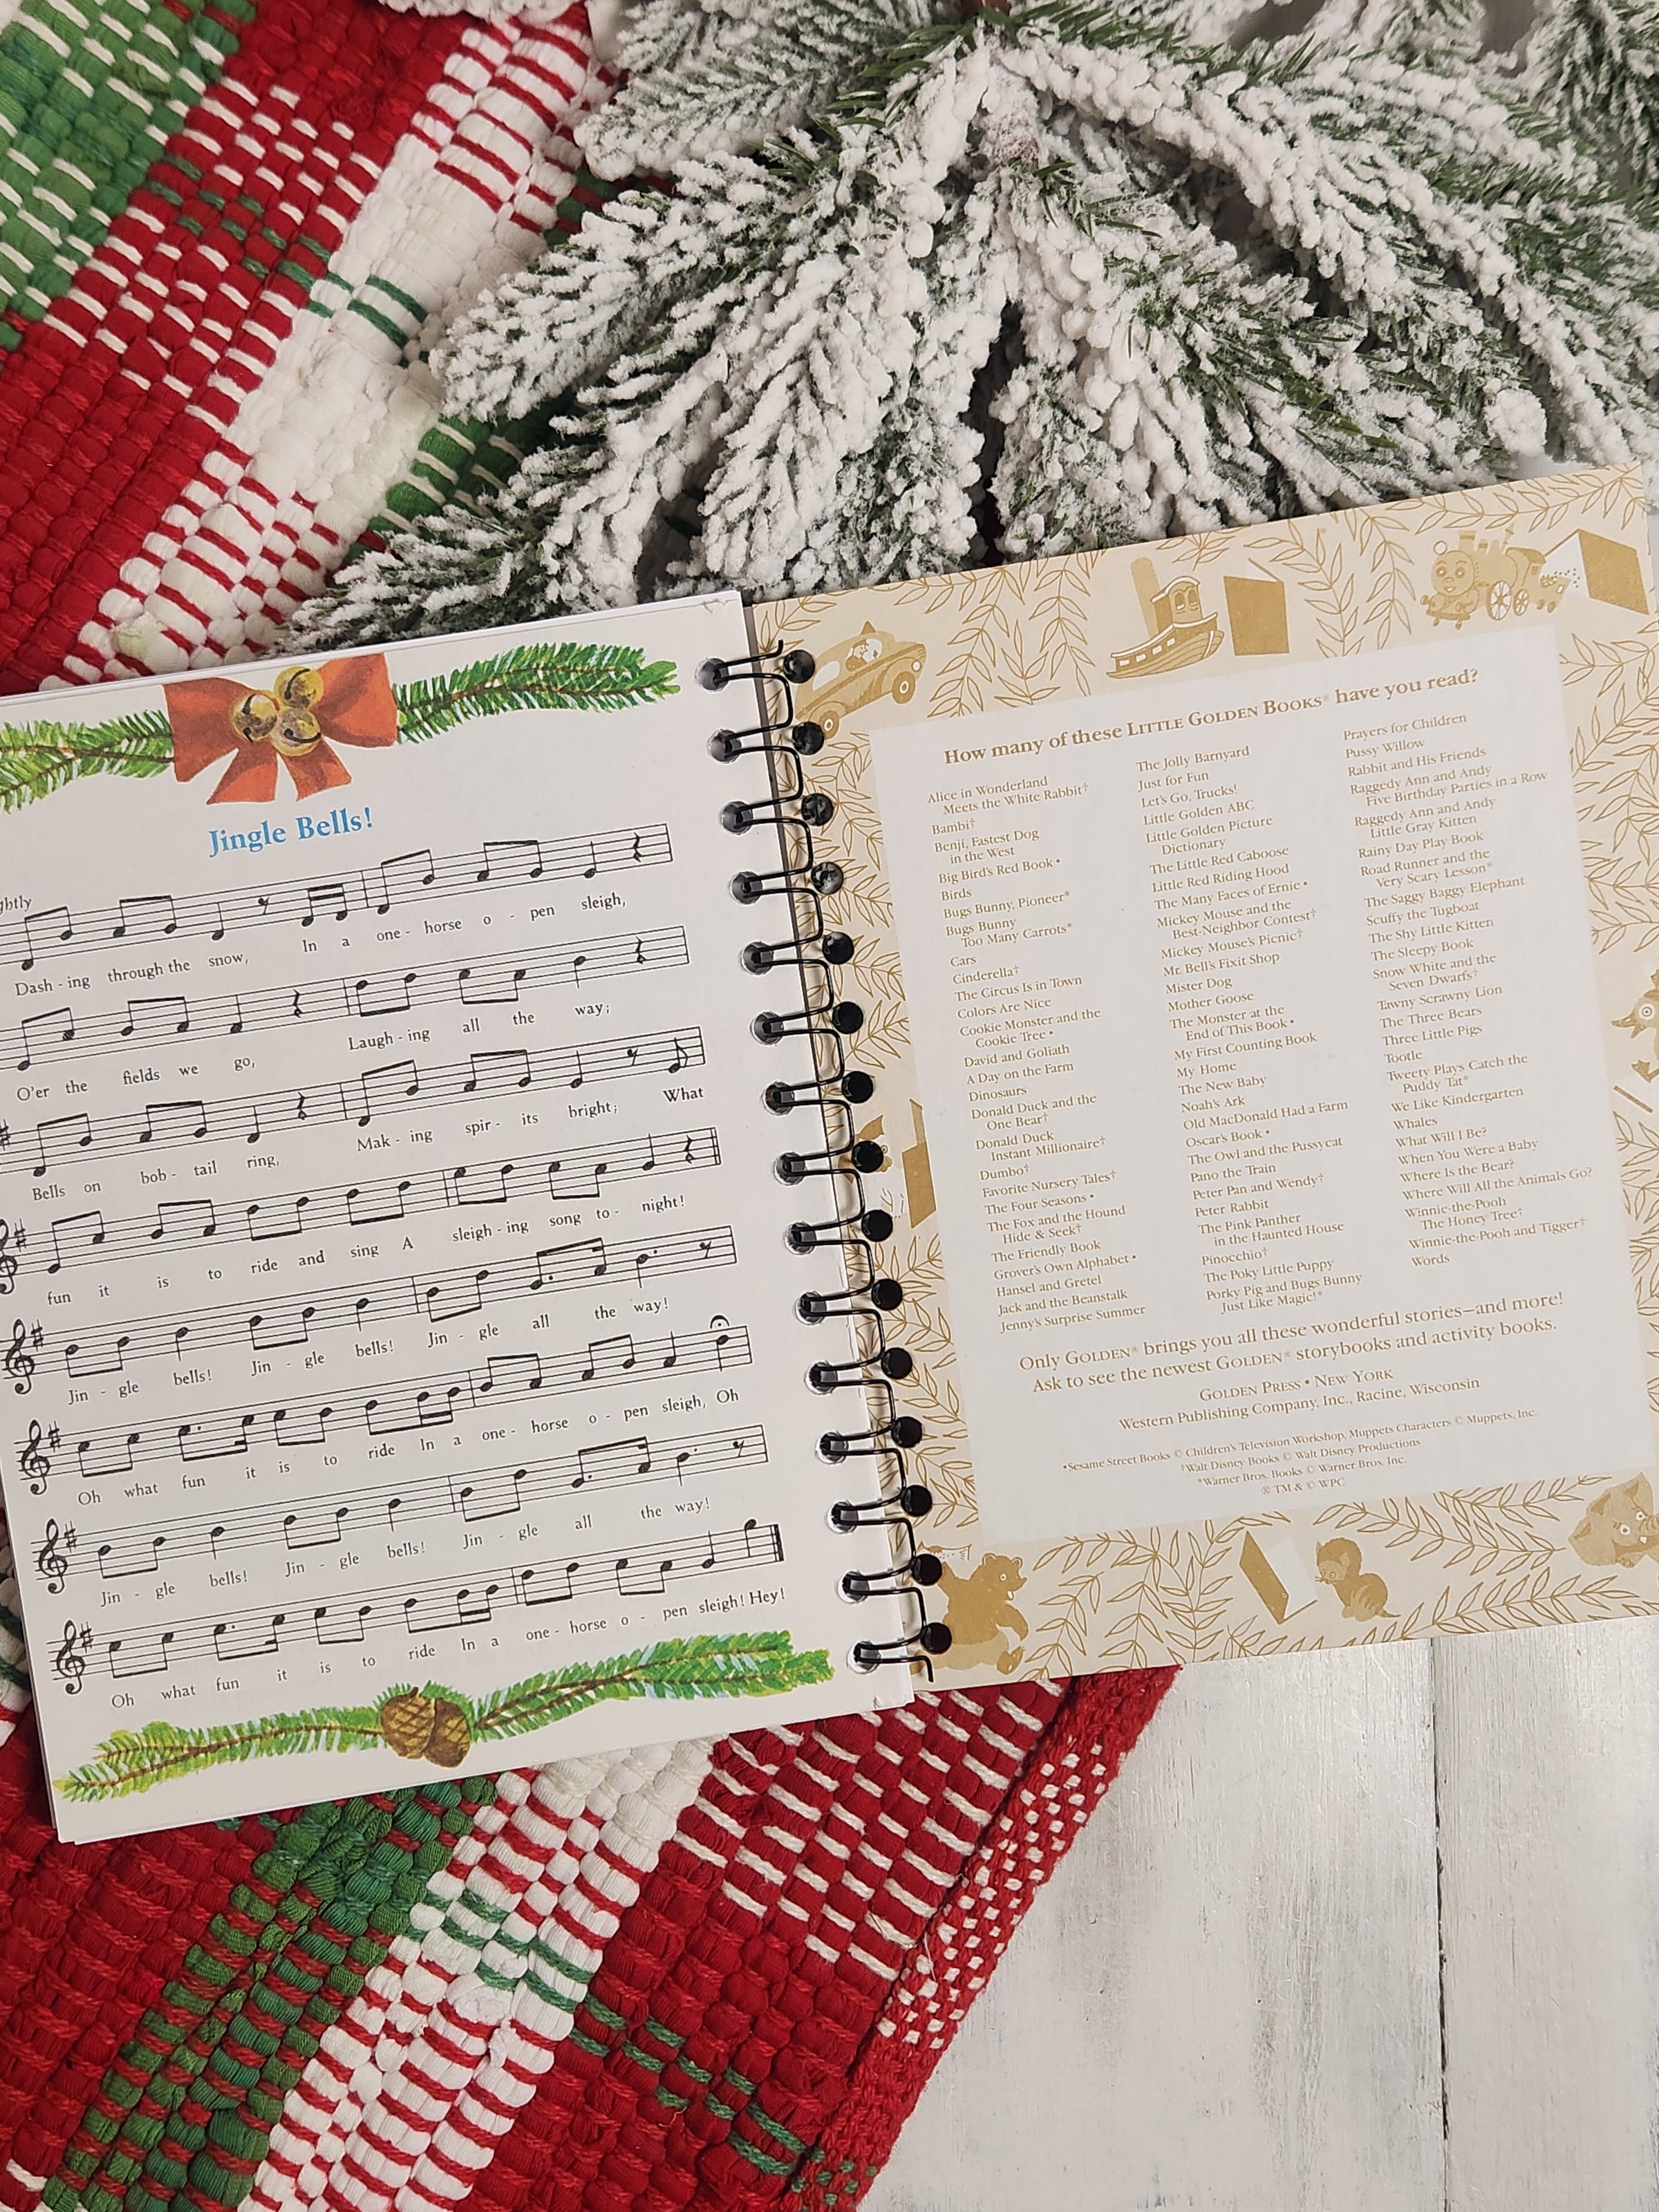 Jingle Bells!
Dash - ing through the snow, In a one - horse o - pen sleigh,
O'er the fields we go, Laugh - ing all the way;
Bells on bob - tail ring, Mak - ing spir - its bright; What
fun it is to ride and sing A sleigh - ing song to - night!
Jin - gle bells! Jin - gle bells! Jin - gle all the way!
Oh what fun it is to ride In a one - horse o - pen sleigh, Oh
Jin - gle bells! Jin - gle bells! Jin - gle all the way!
Oh what fun it is to ride In a one - horse o - pen sleigh! Hey!
How many of these LITTLE GOLDEN BOOKS® have you read?
Alice in Wonderland
Meets the White Rabbit†
Bambi†
Benji, Fastest Dog
in the West
Big Bird's Red Book •
Birds
Bugs Bunny, Pioneer*
Bugs Bunny
Too Many Carrots*
Cars
Cinderella†
The Circus Is in Town
Colors Are Nice
Cookie Monster and the
Cookie Tree •
David and Goliath
A Day on the Farm
Dinosaurs
Donald Duck and the
One Bear†
Donald Duck
Instant Millionaire†
Dumbo†
Favorite Nursery Tales†
The Four Seasons •
The Fox and the Hound
Hide & Seek†
The Friendly Book
Grover's Own Alphabet •
Hansel and Gretel
Jack and the Beanstalk
Jenny's Surprise Summer
The Jolly Barnyard
Just for Fun
Let's Go, Trucks!
Little Golden ABC
Little Golden Picture
Dictionary
The Little Red Caboose
Little Red Riding Hood
The Many Faces of Ernie •
Mickey Mouse and the
Best-Neighbor Contest†
Mickey Mouse's Picnic†
Mr. Bell's Fixit Shop
Mister Dog
Mother Goose
The Monster at the
End of This Book •
My First Counting Book
My Home
The New Baby
Noah's Ark
Old MacDonald Had a Farm
Oscar's Book •
The Owl and the Pussycat
Pano the Train
Peter Pan and Wendy†
Peter Rabbit
The Pink Panther
in the Haunted House
Pinocchio†
The Poky Little Puppy
Porky Pig and Bugs Bunny
Just Like Magic!*
Prayers for Children
Pussy Willow
Rabbit and His Friends
Raggedy Ann and Andy
Five Birthday Parties in a Row
Raggedy Ann and Andy
Little Gray Kitten
Rainy Day Play Book
Road Runner and the
Very Scary Lesson*
The Saggy Baggy Elephant
Scuffy the Tugboat
The Shy Little Kitten
The Sleepy Book
Snow White and the
Seven Dwarfs†
Tawny Scrawny Lion
The Three Bears
Three Little Pigs
Tootle
Tweety Plays Catch the
Puddy Tat*
We Like Kindergarten
Whales
What Will I Be?
When You Were a Baby
Where Is the Bear?
Where Will All the Animals Go?
Winnie-the-Pooh
The Honey Tree†
Winnie-the-Pooh and Tigger†
Words
Only GOLDEN® brings you all these wonderful stories—and more!
Ask to see the newest GOLDEN® storybooks and activity books.
GOLDEN PRESS • NEW YORK
Western Publishing Company, Inc., Racine, Wisconsin
•Sesame Street Books © Children's Television Workshop, Muppets Characters © Muppets, Inc.
†Walt Disney Books © Walt Disney Productions
*Warner Bros. Books © Warner Bros. Inc.
® TM & © WPC